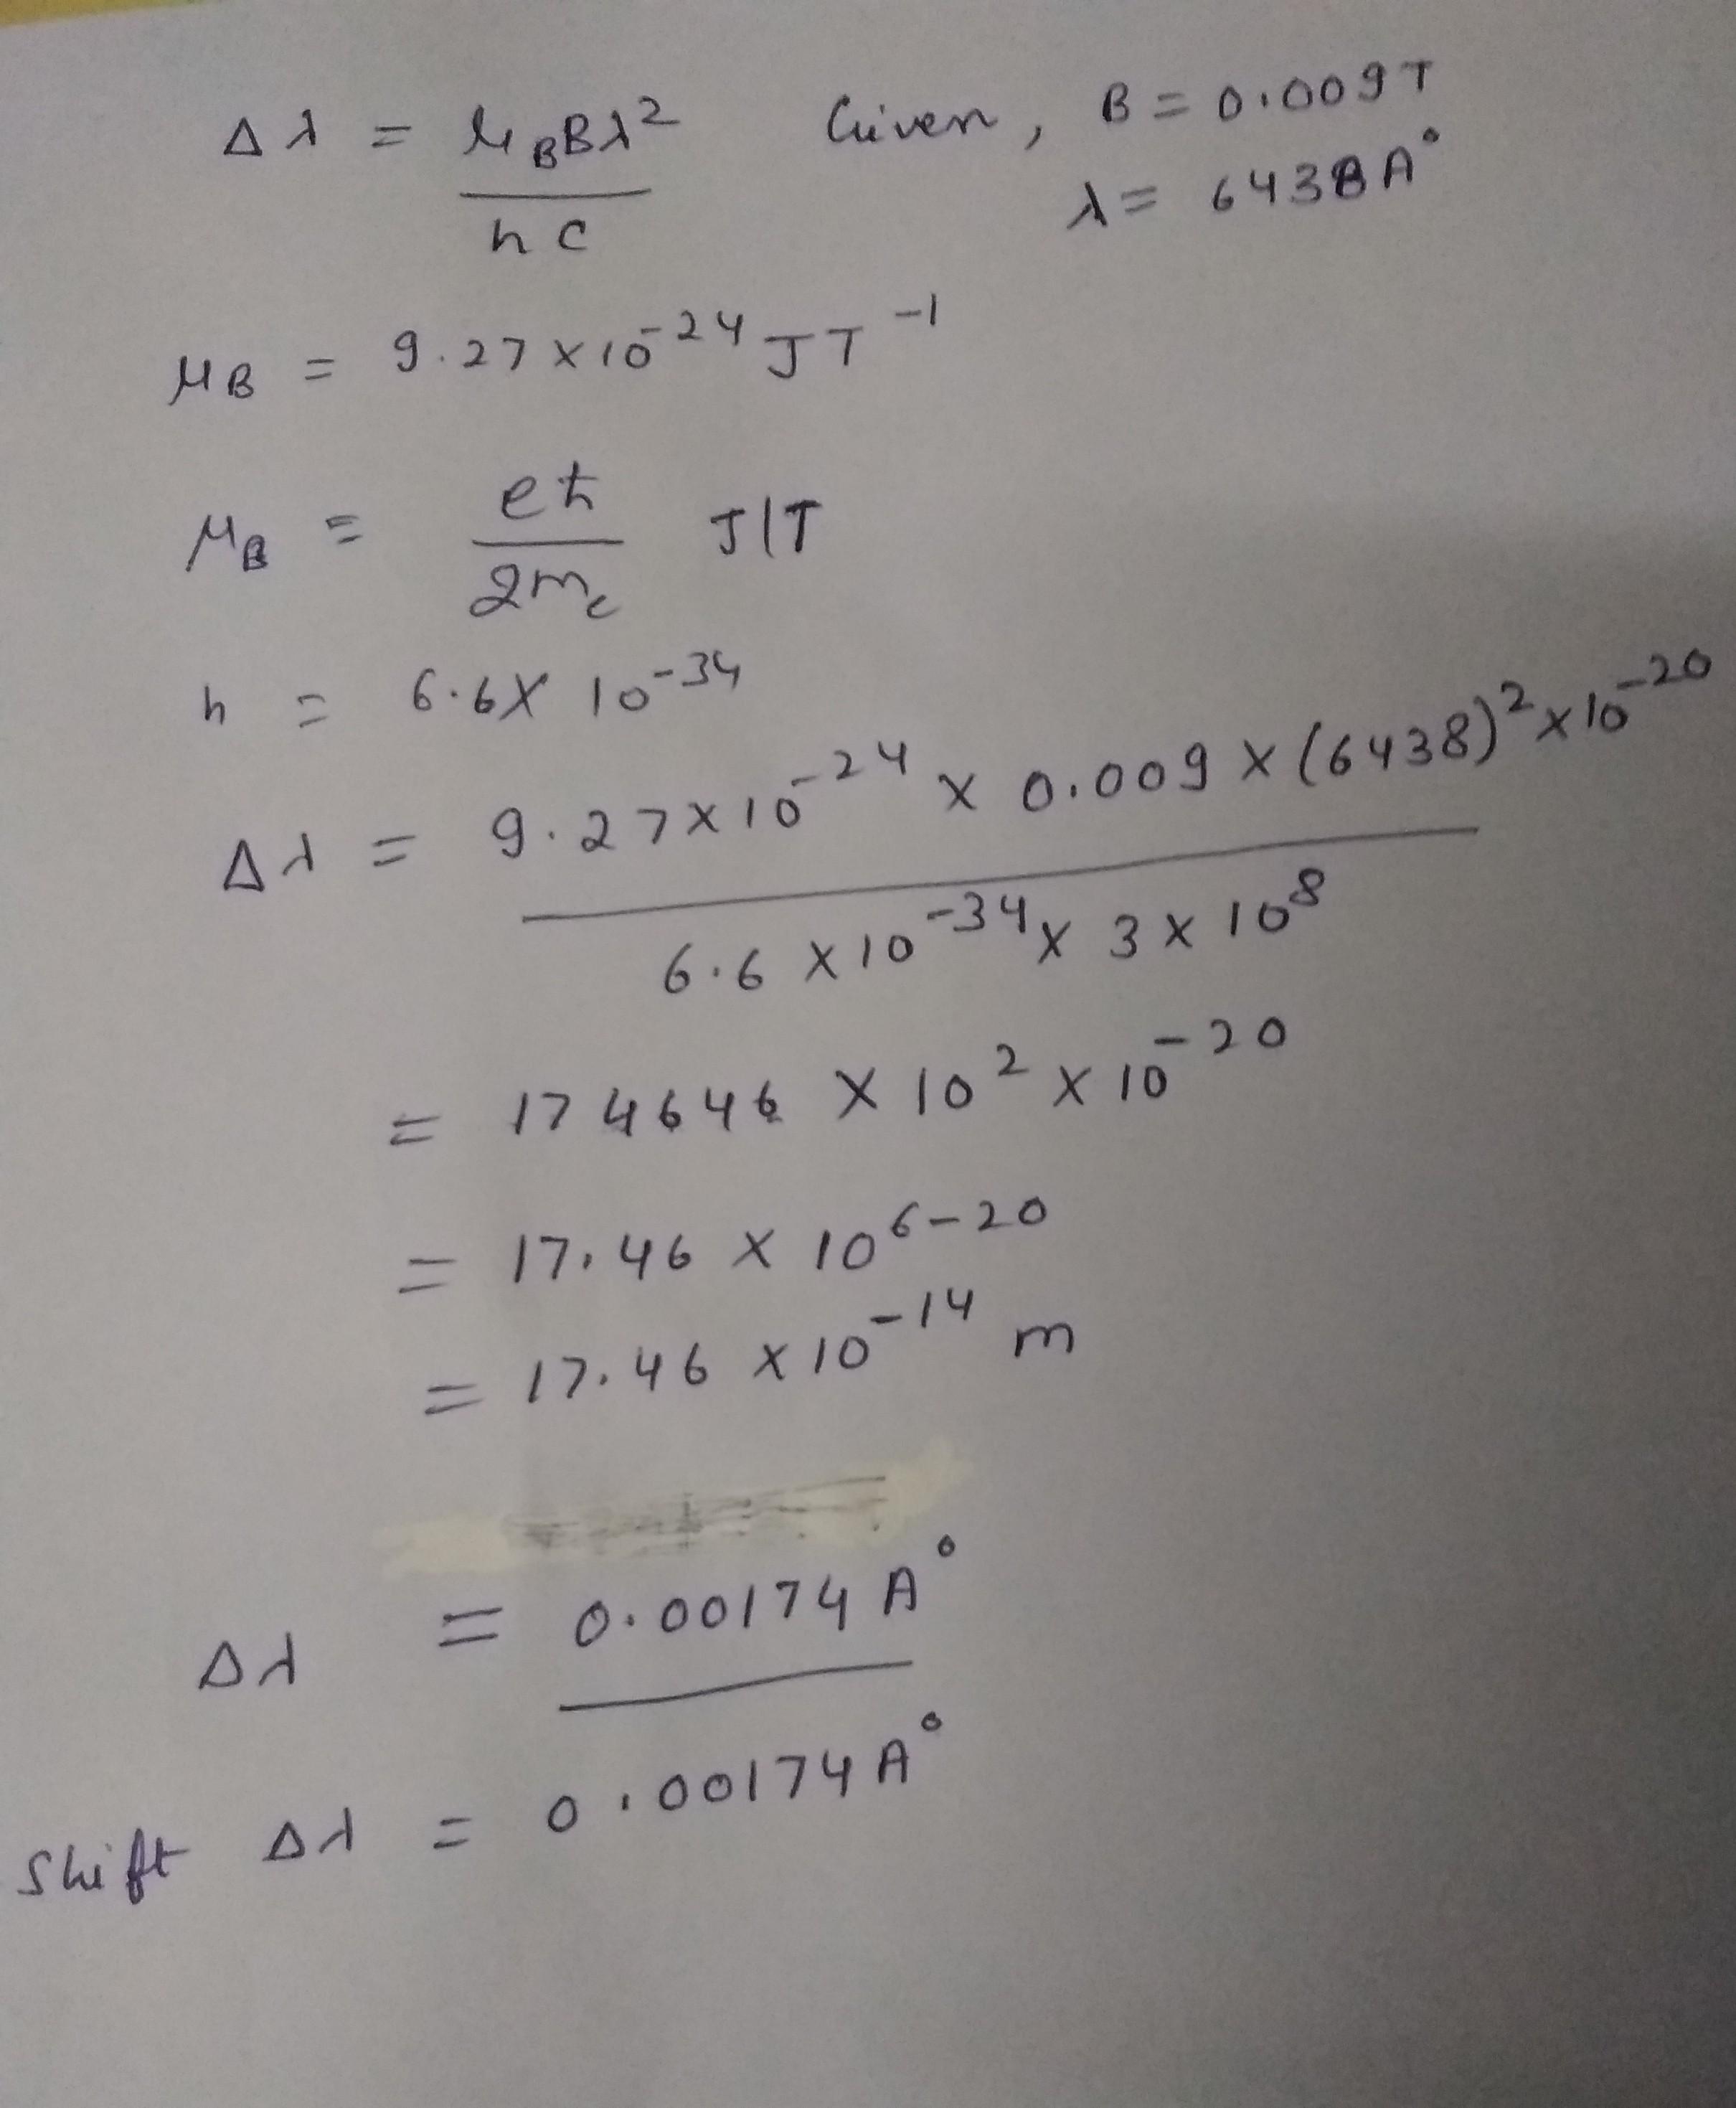 Δλ = μ_B B λ² / hc Given, B = 0.009T
λ = 6438 A°
μ_B = 9.27 × 10⁻²⁴ J T⁻¹
μ_B = eħ / 2m_e J/T
h = 6.6 × 10⁻³⁴
Δλ = 9.27 × 10⁻²⁴ × 0.009 × (6438)² × 10⁻²⁰ / 6.6 × 10⁻³⁴ × 3 × 10⁸
= 174646 × 10² × 10⁻²⁰
= 17.46 × 10⁶⁻²⁰
= 17.46 × 10⁻¹⁴ m
Δλ = 0.00174 A°
Shift Δλ = 0.00174 A°